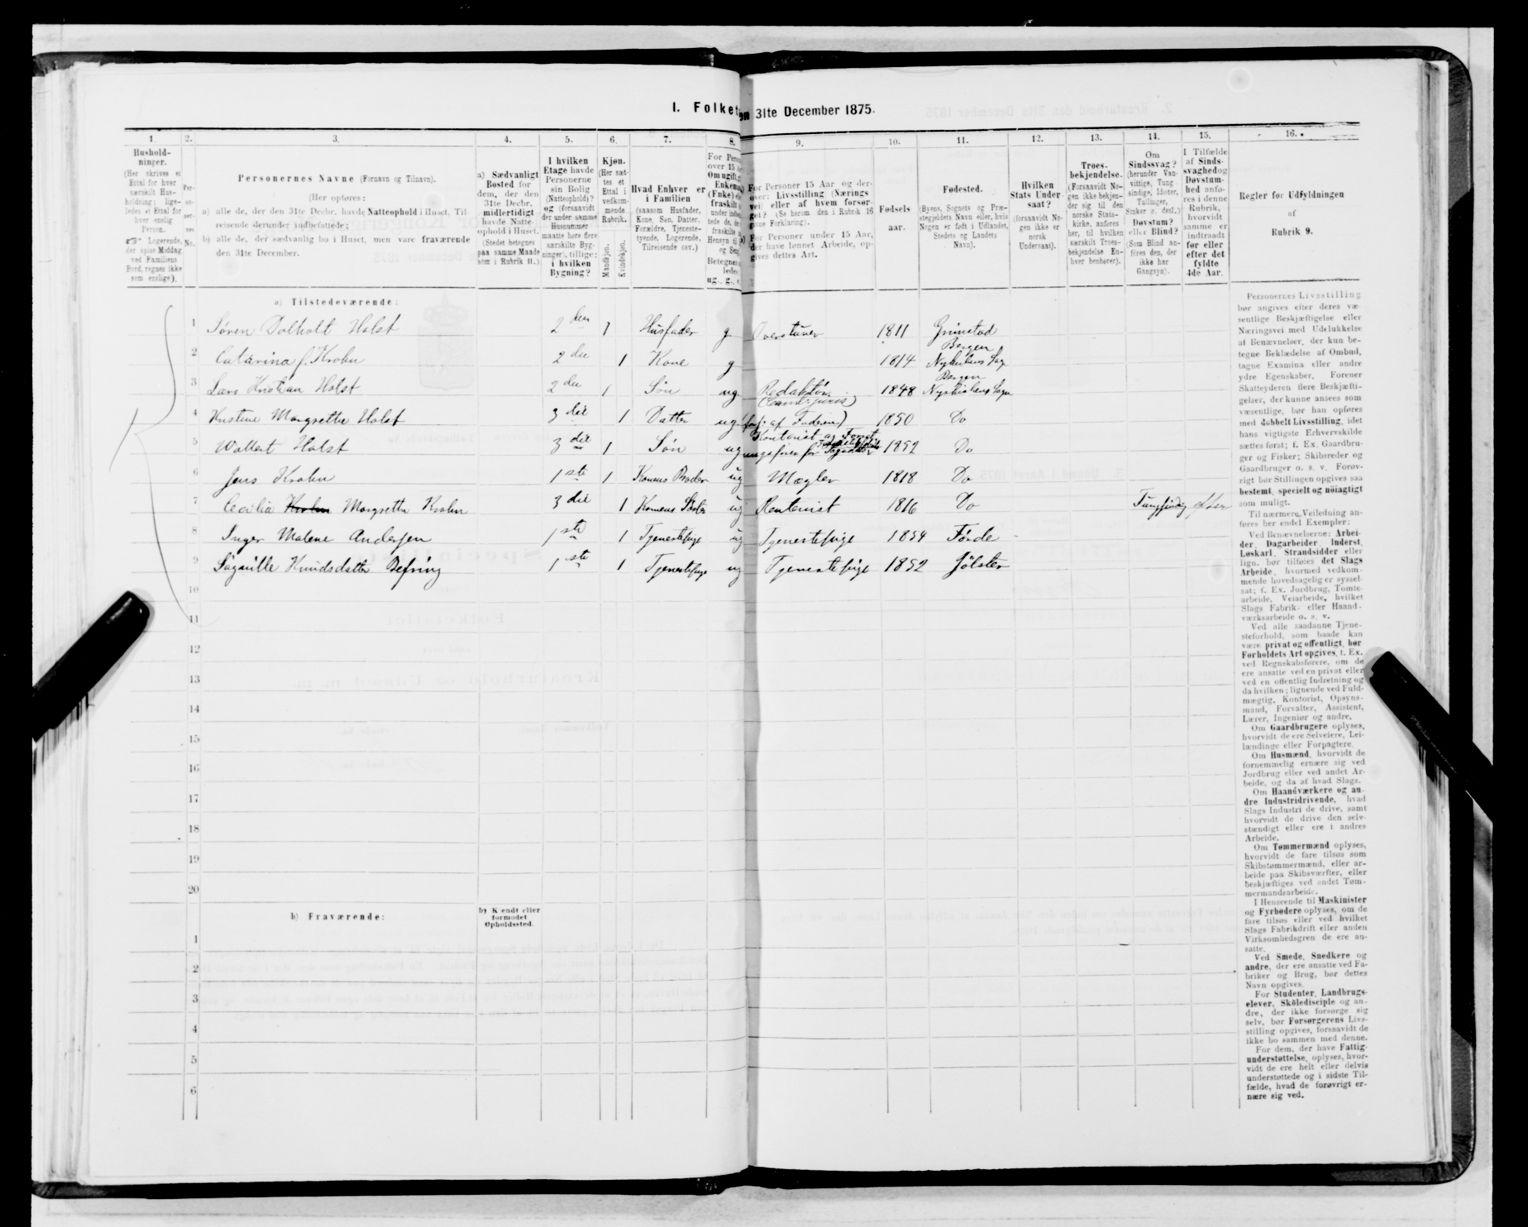 I. Folket
en 31te December 1875.
1. 2. 3. 4. 5. 6. 7. 8. 9. 10. 11. 12. 13. 14. 15. 16.
Hushold-
ninger.
(Her skrives et
Ettal for hver
særskilt Hus-
holdning; lige-
ledes et Ettal for
hver enslig
Person.
Logerende,
der spise Middag
ved Familiens
Bord, regnes ikke
som enslige).
Personernes Navne (Fornavn og Tilnavn).
(Her opføres:
a) alle de, der den 31te Decbr. havde Natteophold i Huset, Til-
reisende derunder indbefattede;
b) alle de, der sædvanlig bo i Huset, men vare fraværende
den 31te December.
a) Sædvanligt
Bosted for
dem, der den
31te Decbr.
midlertidigt
havde Natte-
ophold i Huset.
(Stedet betegnes
paa samme Maade
som i Rubrik 11.)
I hvilken
Etage havde
Personerne
sin Bolig
(Natteophold)?
og (forsaavidt
der under samme
Husnummer
maatte høre flere
særskilte Byg-
ninger), tillige:
i hvilken
Bygning?
Kjøn.
(Her sæt-
tes et
Ettal i
vedkom-
mende
Rubrik.)
Mandkjøn.
Kvindekjøn.
Hvad Enhver er
i Familien
(saasom Husfader,
Kone, Søn, Datter,
Forældre, Tjeneste-
tyende, Logerende,
Tilreisende osv.)
For Personer 15 Aar og der-
over: Livsstilling (Nærings-
vei) eller af hvem forsør-
get? (Se herom den i Rubrik 16
givne Forklaring).
For Personer under 15 Aar,
der have lønnet Arbeide, op-
gives dettes Art.
Fødsels
aar.
Fødested.
(Byens, Sognets og Præ-
stegjeldets Navn eller, hvis
Nogen er født i Udlandet,
Stedets og Landets
Navn).
Hvilken
Stats Under-
saat?
(forsaavidt No-
gen ikke er
norsk
Undersaat).
Troes-
bekjendelse.
(Forsaavidt No-
gen ikke bekjen-
der sig til den
norske Stats-
kirke, anføres
her, til hvilken
særskilt Troes-
bekjendelse En-
hver henhører).
Om
Sindssvag?
(herunder Van-
vittige, Tung
sindige, Idioter,
Tullinger,
Sinker o. desl.)
Døvstum?
eller Blind?
(Som Blind an-
føres den, der
ikke har
Gangsyn).
I Tilfælde
af Sinds-
svaghed og
Døvstum-
hed anfø-
res i denne
Rubrik,
hvorvidt
samme er
indtraadt
før eller
efter det
fyldte
4de Aar.
Regler for Udfyldningen
af
Rubrik 9.
a) Tilstedeværende:
1 Søren Dolholt Holst 2den 1 Husfader g Overstuver 1811 Grimstad
2 Catarina f. Krohn 2die 1 Kone g 1814 Bergen Nykirkens Sog
3 Lars Kristian Holst 2die 1 Søn ug Redaktør (Cand: juris) 1848 Bergen Nykirkens Sogn
4 Kristine Margrethe Holst 3die 1 Datter ug (fors: af Faderen) 1850 Do
5 Wollert Holst 3die 1 Søn ug 1852 Do
6 Jens Krohn 1ste 1 Konens Broder ug Mægler 1818 Do
7 Cecilia Krohn Margrethe Krohn 3die 1 Konens Søster ug Rentenist 1816 Do Tungsindig efter
8 Inger Malene Andersen 1ste 1 Tjenestepige ug Tjenestepige 1854 Førde
9 Knudsdatter Befring 1ste 1 Tjenestepige ug Tjenestepige 1852 Jølster
10
11
12
13
14
15
16
17
18
19
20
b) Fraværende:
b) Kjendt eller
formodet
Opholdssted.
1
2
3
4
5
6
Personernes Livsstilling
bør angives efter deres væ
sentlige Beskjæftigelse eller
Næringsvei med Udelukkelse
af Benævnelser, der kun be-
tegne Beklædelse af Ombud,
tagne Examina eller andre
ydre Egenskaber. Forener
Skatteyderen flere Beskjæfti-
gelser, der kunne ansees som
væsentlige, bør han opføres
med dobbelt Livsstilling, idet
hans vigtigste Erhvervskilde
sættes først; f. Ex. Gaardbru-
ger og Fisker; Skibsreder og
Gaardbruger o. s. v. Forøv-
rigt bør Stillingen opgives saa
bestemt, specielt og nöiagtigt
som muligt.
Til nærmere Veiledning an-
føres her endel Exempler:
Ved Benævnelserne: Arbei-
der, Dagarbeider, Inderst,
Løskarl, Strandsidder eller
lign. bør tilføies det Slags
Arbeide, hvormed vedkom-
mende hovedsagelig er syssel-
sat; f. Ex. Jordbrug, Tomte-
arbeide, Veiarbeide, hvilket
Slags Fabrik- eller Haand-
værksarbeide o. s. v.
Ved alle saadanne Tjene-
steforhold, som baade kan
være privat og offentligt, bør
Forholdets Art opgives, f. Ex.
ved Regnskabsførere, om de
ere ansatte ved en privat eller
ved en offentlig Indretning og
da hvilken; lignende ved Fuld-
mægtig, Kontorist, Opsyns-
mand, Forvalter, Assistent,
Lærer, Ingeniør og andre.
Om Gaardbrugere oplyses,
hvorvidt de ere Selveiere, Lei-
lændinge eller Forpagtere.
Om Husmænd, hvorvidt de
fornemmelig ernære sig ved
Jordbrug eller ved andet Ar-
beide, og da af hvad Slags.
Om Haandværkere og an-
dre Industridrivende, hvad
Slags Industri de drive, samt
hvorvidt de drive den selv-
stændigt eller ere i andres
Arbeide.
Om Tømmermænd oplyses,
hvorvidt de fare tilsøs som
Skibstømmermænd, eller ar-
beide paa Skibsværfter, eller
beskjæftiges ved andet Tøm-
mermandsarbeide.
I Henseende til Maskinister
og Fyrbødere oplyses, om de
fare tilsøs eller ved hvilket
Slags Fabrikdrift eller anden
Virksomhedsgren de ere an-
satte.
Ved Smede, Snedkere og
andre, der ere ansatte ved Fa-
briker og Brug, bør dettes
Navn opgives.
For Studenter, Landbrugs-
elever, Skoledisciple og an-
dre, der ikke forsørge sig
selv, bør Forsørgerens Livs-
stilling opgives, forsaavidt de
ikke bo sammen med denne.
For dem, der have Fattig-
understøttelse, oplyses, hvor-
vidt de ere helt eller delvis
understøttede og i sidste Til-
fælde, hvad de forøvrigt er-
nære sig ved.